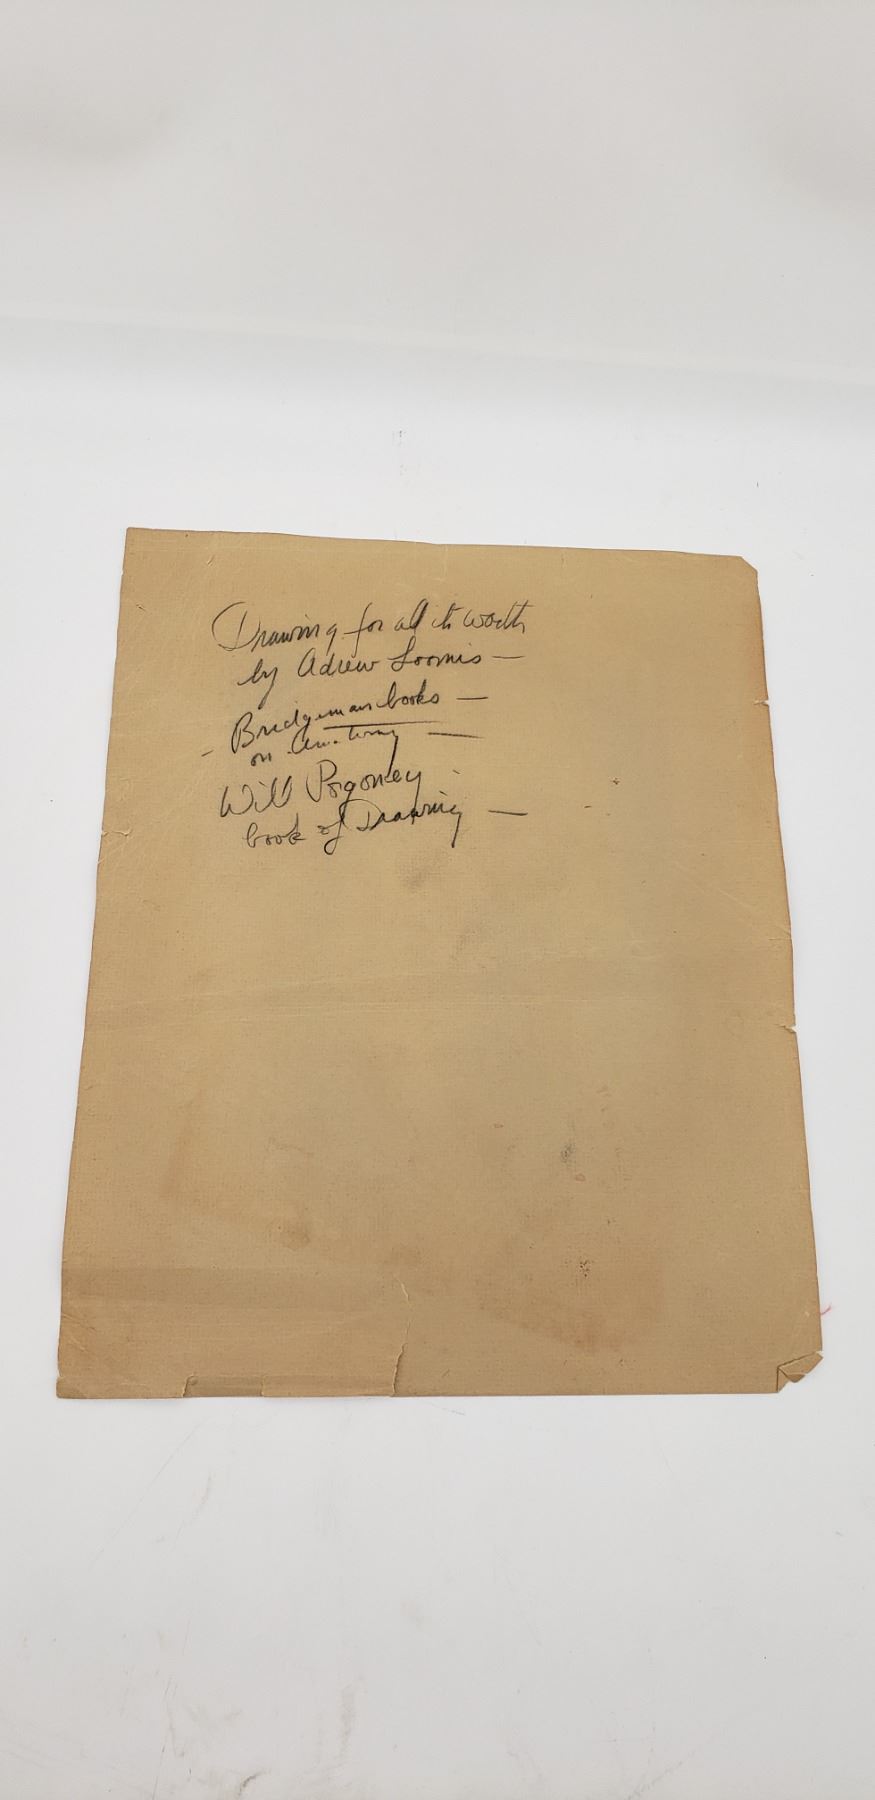 Drawing for all its worth
by Adrew Loomis —
- Bridgeman books —
on Anatomy —
Will Pogoney
book of Drawing —